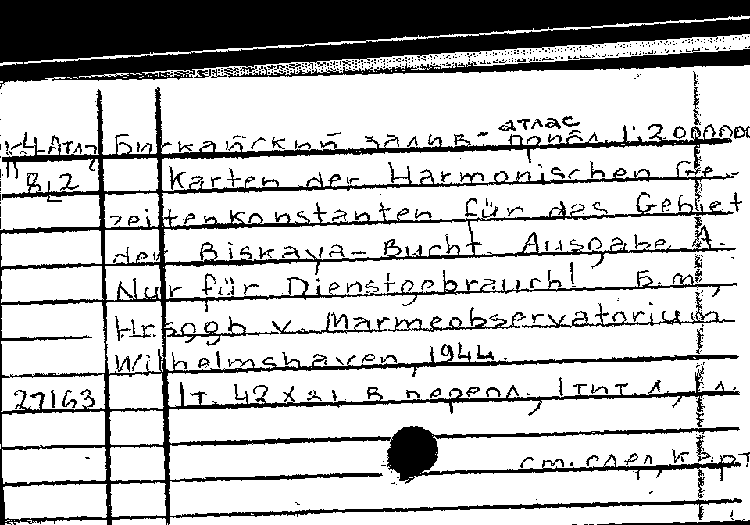 атлас
К4-Атл2 Бискайский залив - прибл. 1:2000000
B12 Karten der Harmonischen Ge-
zeitenkonstanten für das Gebiet
der Biskaya-Bucht. Ausgabe A.
Nur für Dienstgebrauch! Б.м.,
Hrsggb v. Marmeobservatorium
Wilhelmshaven, 1944.
27163 1т. 42 х 31 в перепл., 1 тит. л.,
см. след. карт